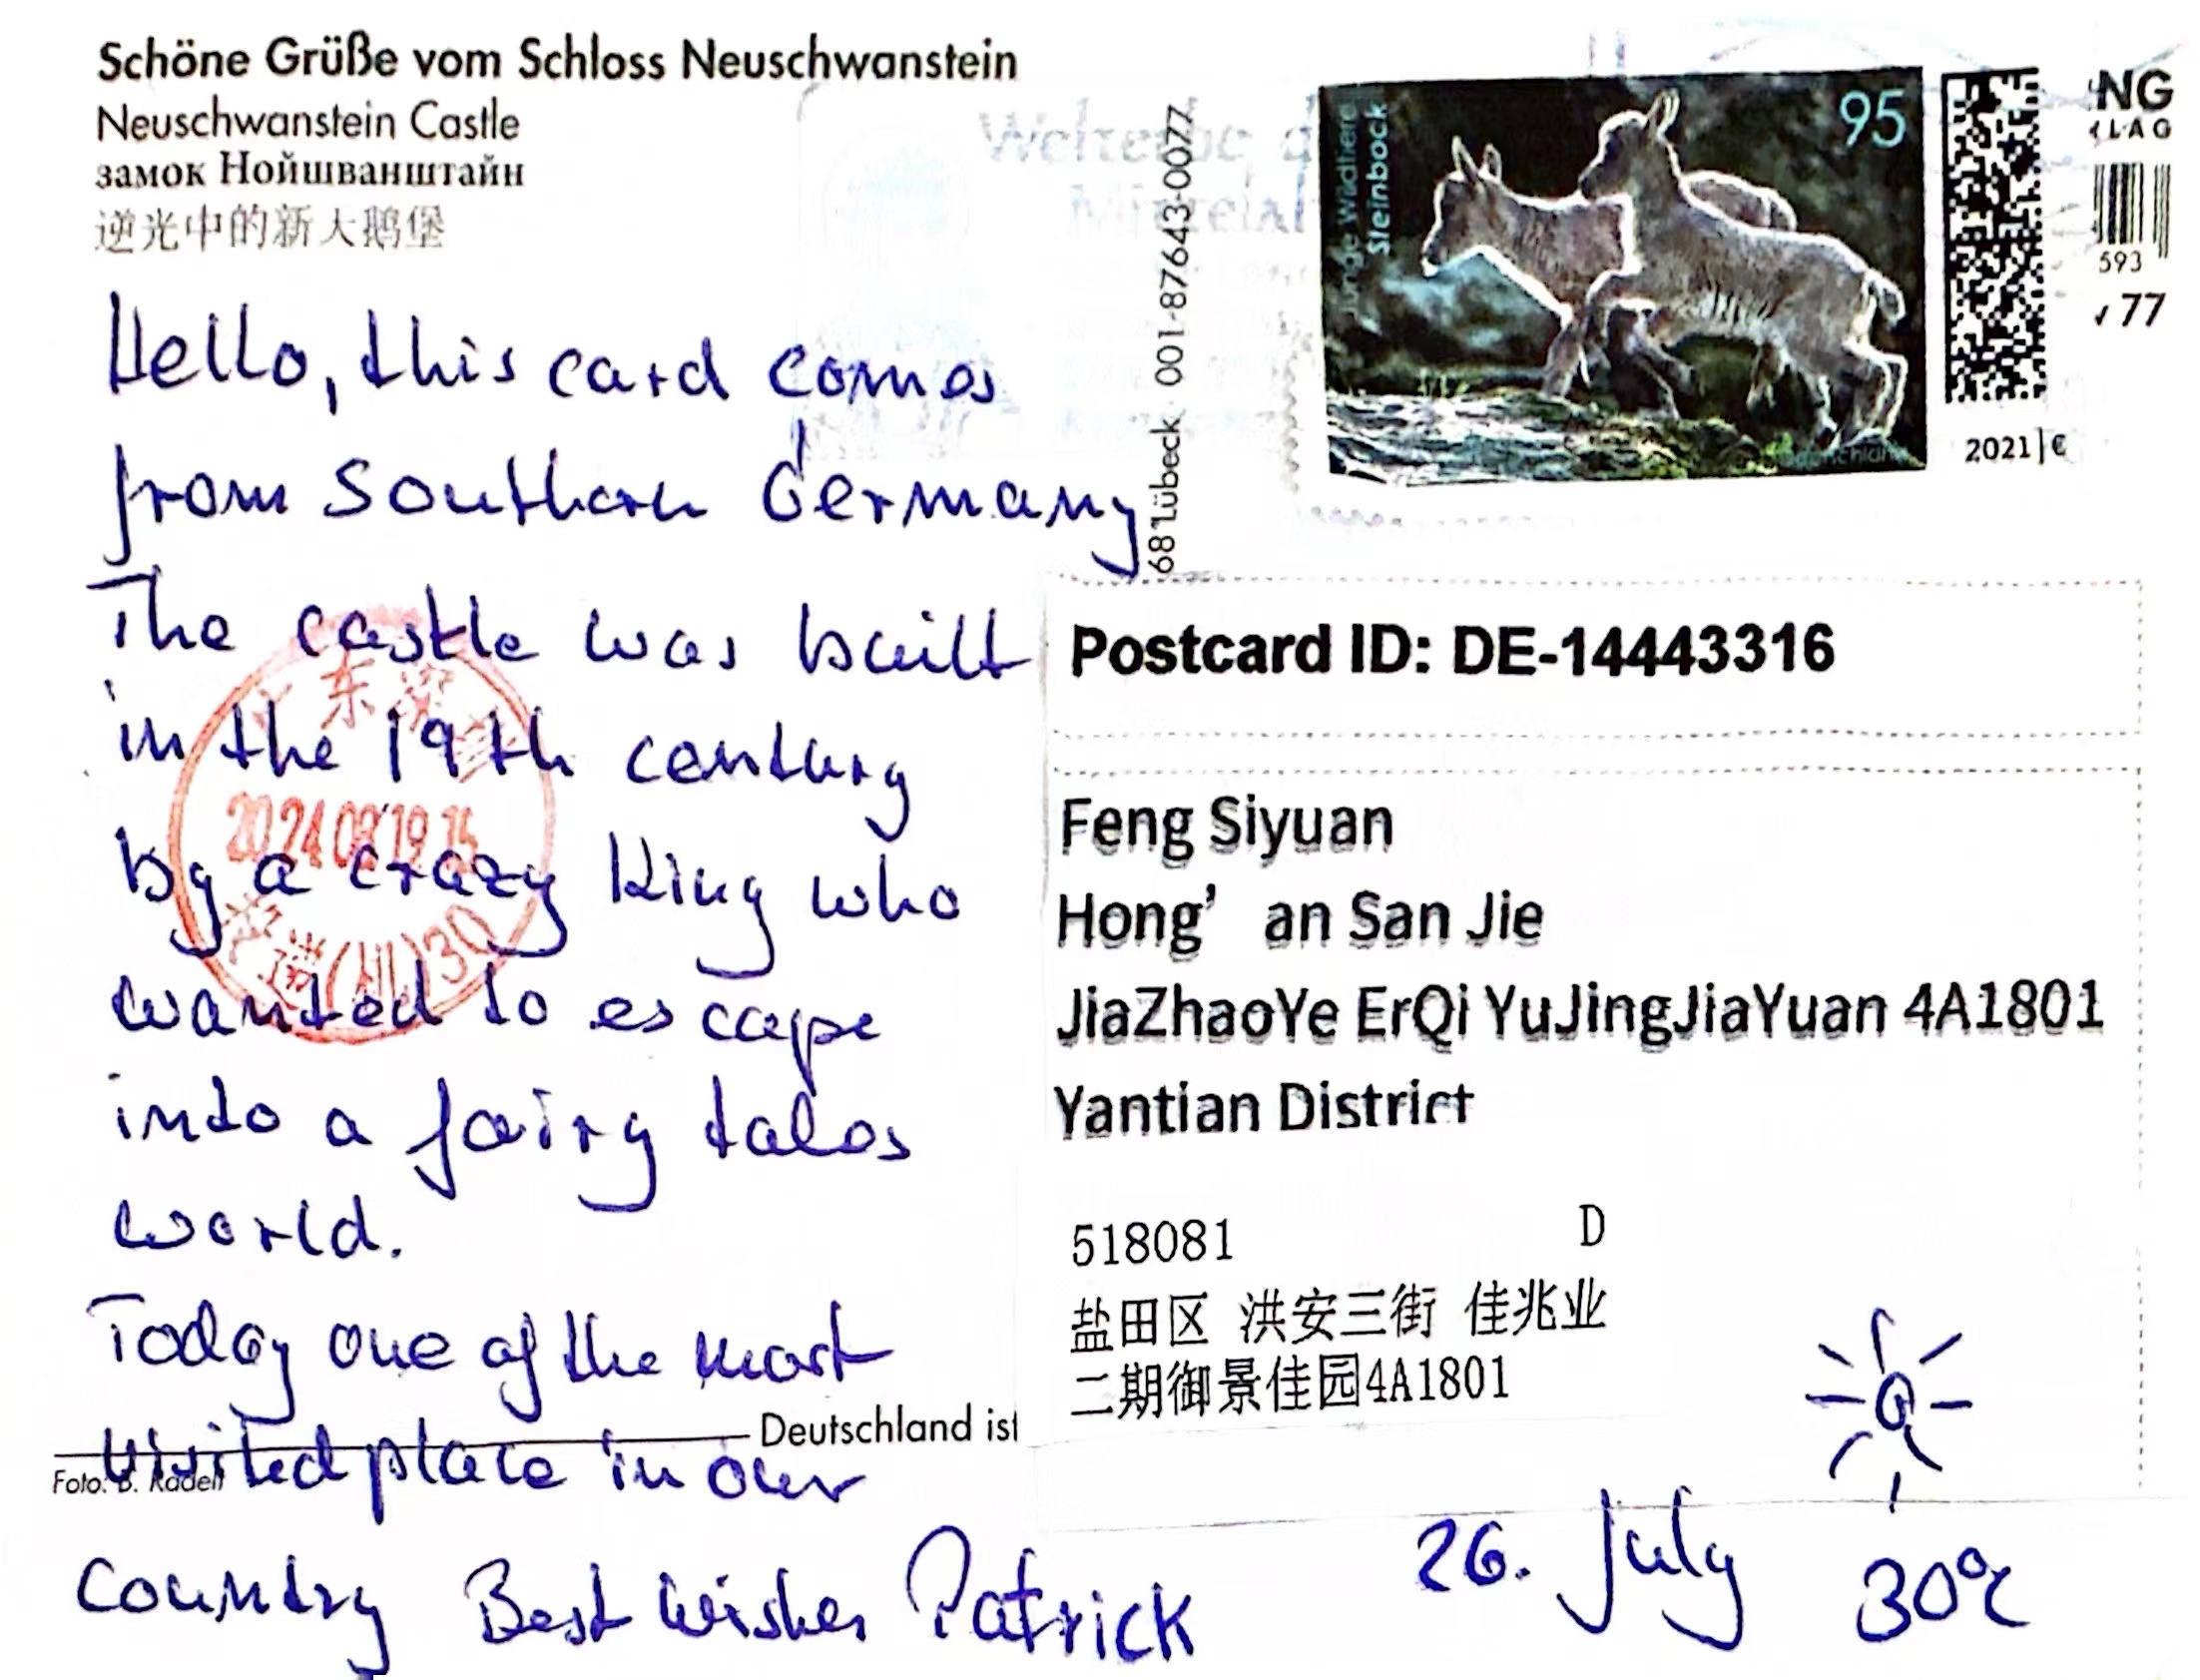 Schöne Grüße vom Schloss Neuschwanstein
Neuschwanstein Castle
замок Нойшванштайн
逆光中的新天鹅堡
Hello, this card comes
from Southern Germany
The castle was built
in the 19th century
by a crazy King who
wanted to escape
into a fairy tales
world.
Today one of the most
visited place in our
country Best wishes Patrick
Deutschland ist
Foto: B. Radell
Welterbe
68 Lübeck 001-87643-0077
Junge Wildtiere
Steinbock
95
Deutschland
2021 €
NG
LAG
593
77
Postcard ID: DE-14443316
Feng Siyuan
Hong’ an San Jie
JiaZhaoYe ErQi YuJingJiaYuan 4A1801
Yantian District
518081 D
盐田区 洪安三街 佳兆业
二期御景佳园4A1801
26. July 30°C
东
2024 08 19
30